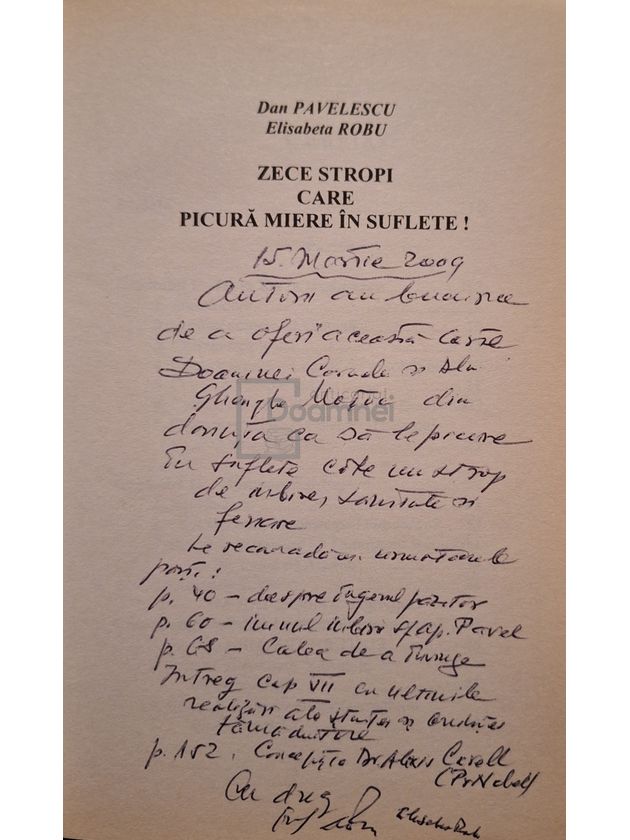 Dan PAVELESCU
Elisabeta ROBU
ZECE STROPI
CARE
PICURĂ MIERE ÎN SUFLETE !
15. Martie 2009
Autorii au bucuria
de a oferi această carte
Doamnei și Dlui
Gheorghe din
dorința ca să le picure
în suflete câte un strop
de iubire, sănătate și
fericire
Le recomandăm următoarele
părți:
p. 40 – despre îngerul păzitor
p. 60 – imnul iubirii Sf. ap. Pavel
p. 68 – Calea de a învinge
Întreg cap VII cu ultimele
realizări ale științei și credinței
tămăduitoare
p. 152. Concepția Dr Alexis Carell
(Pr Nobel)
Cu drag
Doamnei